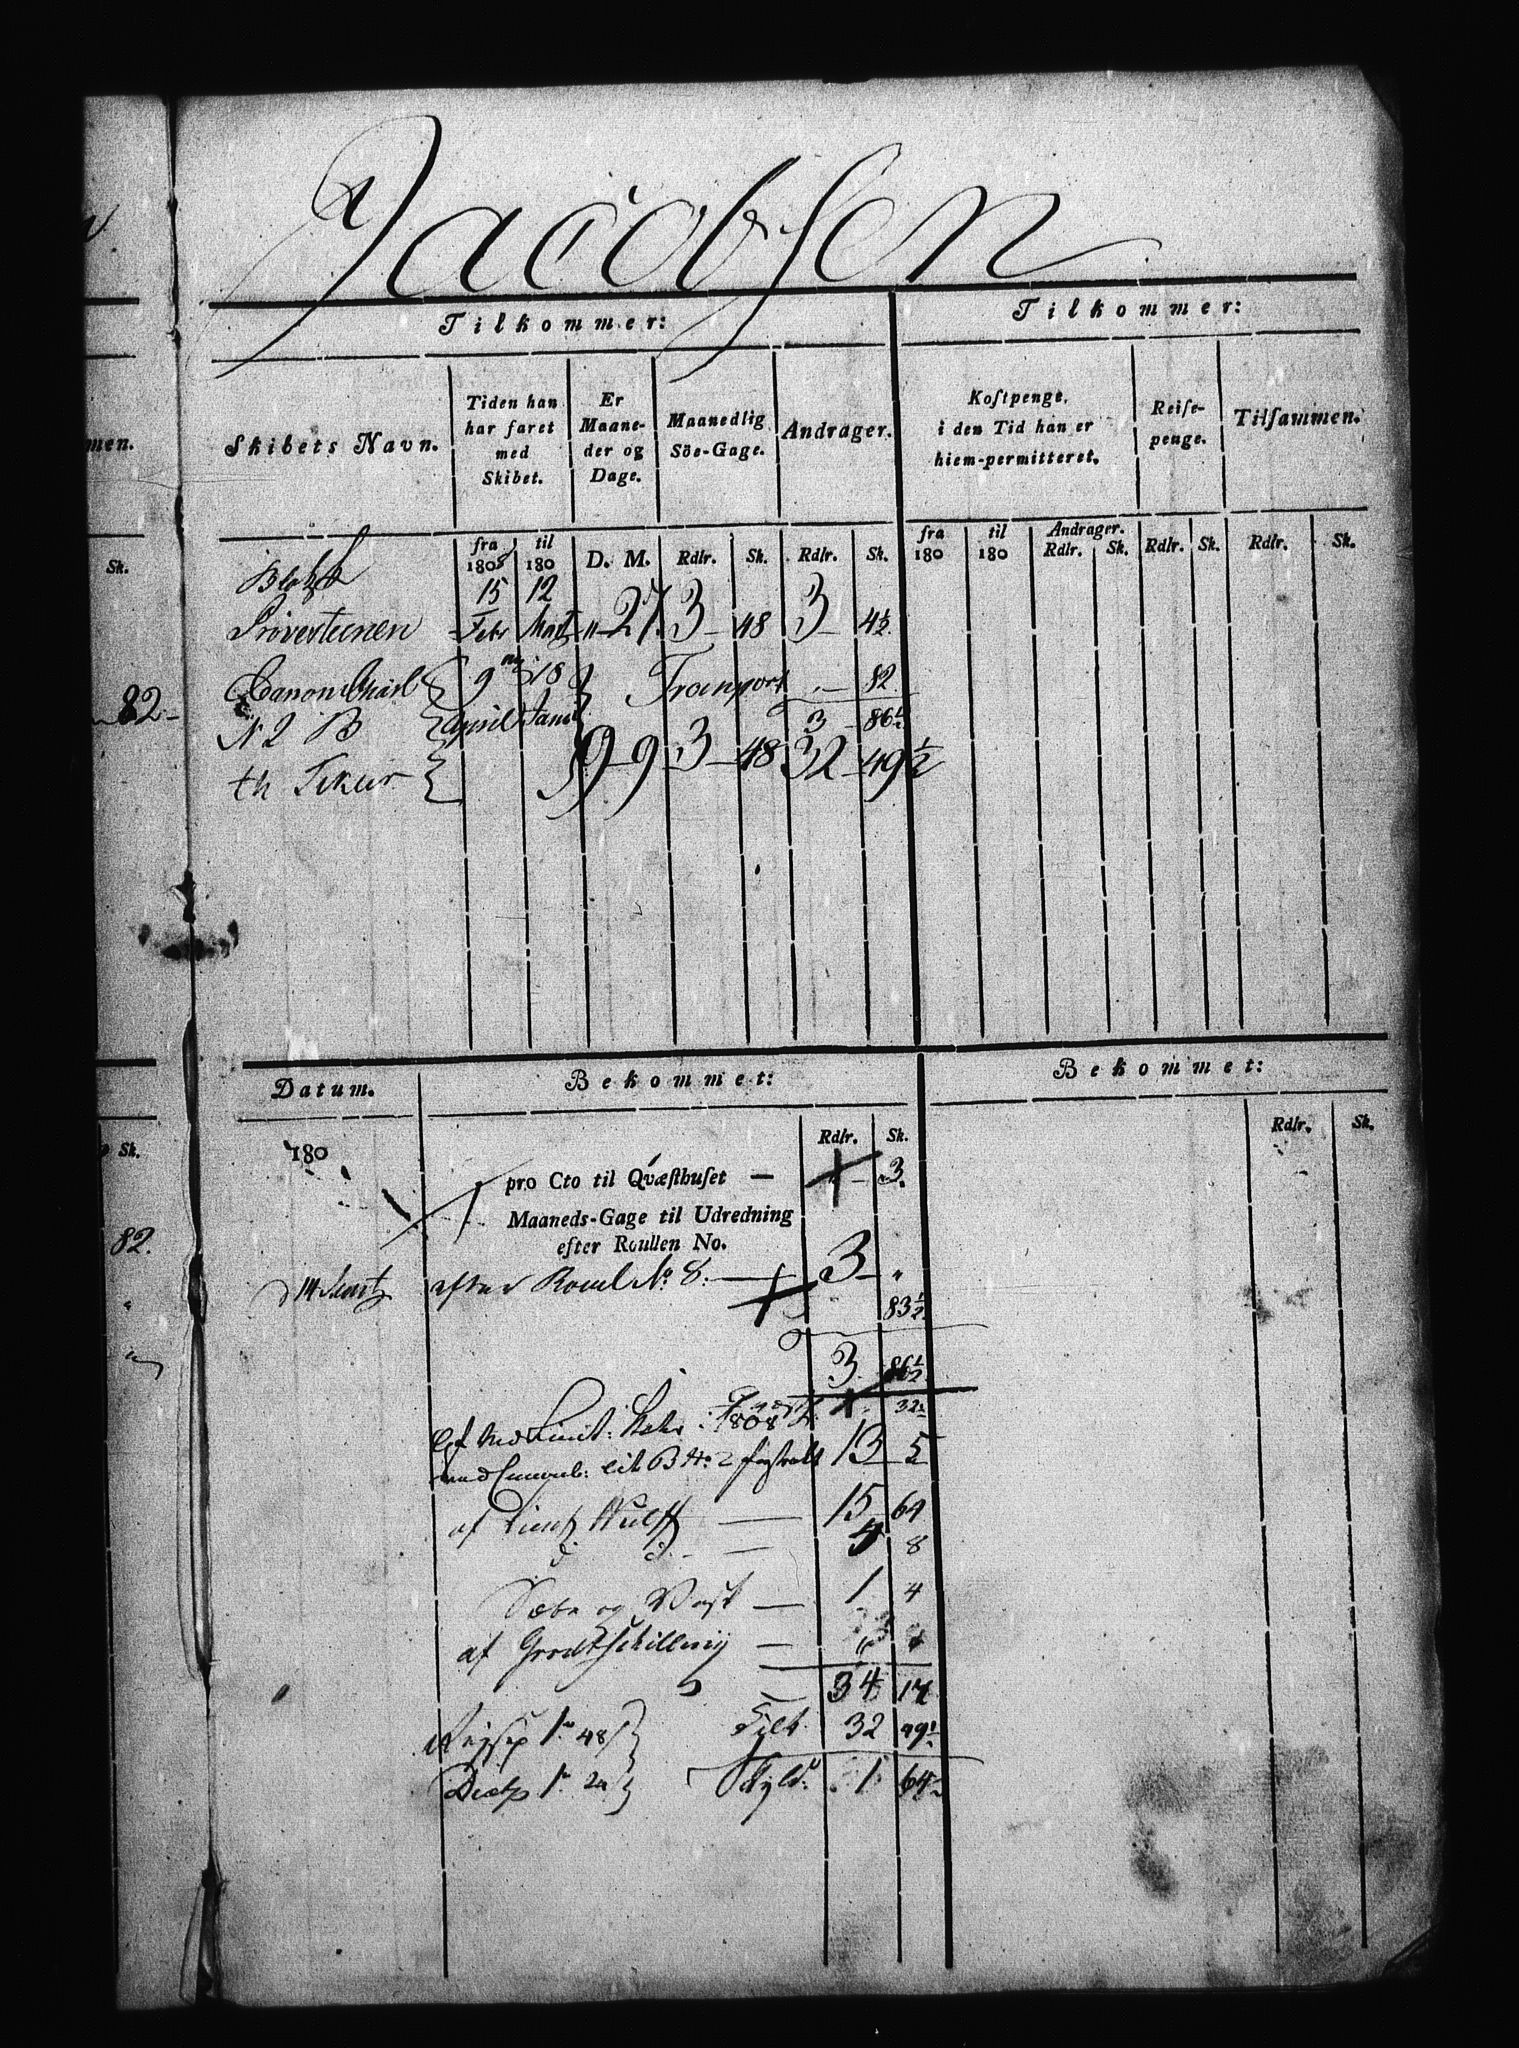 Jacobsen
Tilkommer:
Tilkommer:
Skibets Navn.
Tiden han
har faret
med
Skibet.
Er
Maane-
der og
Dage.
Maanedlig
Söe-Gage.
Andrager.
Kostpenge,
i den Tid han er
hiem-permitteret.
Reise-
penge.
Tilsammen.
men.
Sk.
fra
1808
til
180
D. M. Rdlr. Sk. Rdlr. Sk.
fra
180
til
180
Andrager.
Rdlr. Sk. Rdlr. Sk. Rdlr. Sk.
15 12
Prövesteenen Febr Martz " 27 3 48 3 4½
Canon Chal 9 18 Transport 82
N 2 B April Janu 3 86½
82
9 9 3 48 32 49½
Datum.
Bekommet:
Bekommet:
Rdlr. Sk.
Rdlr. Sk.
Sk.
180
pro Cto til Qvæsthuset — 3.
Maaneds-Gage til Udredning
efter Roullen No.
82.
d 14 Martz efter Roul No. 8. 3 "
83½
3 86½
1808 32
B No. 2 13 5
af Lieut Wulff 15 64
d. d. 4 8
Sæbe og Vask 1 4
af Grodtschilling
34 17
48 Tilk. 32 49½
24 Skyld. 1 64